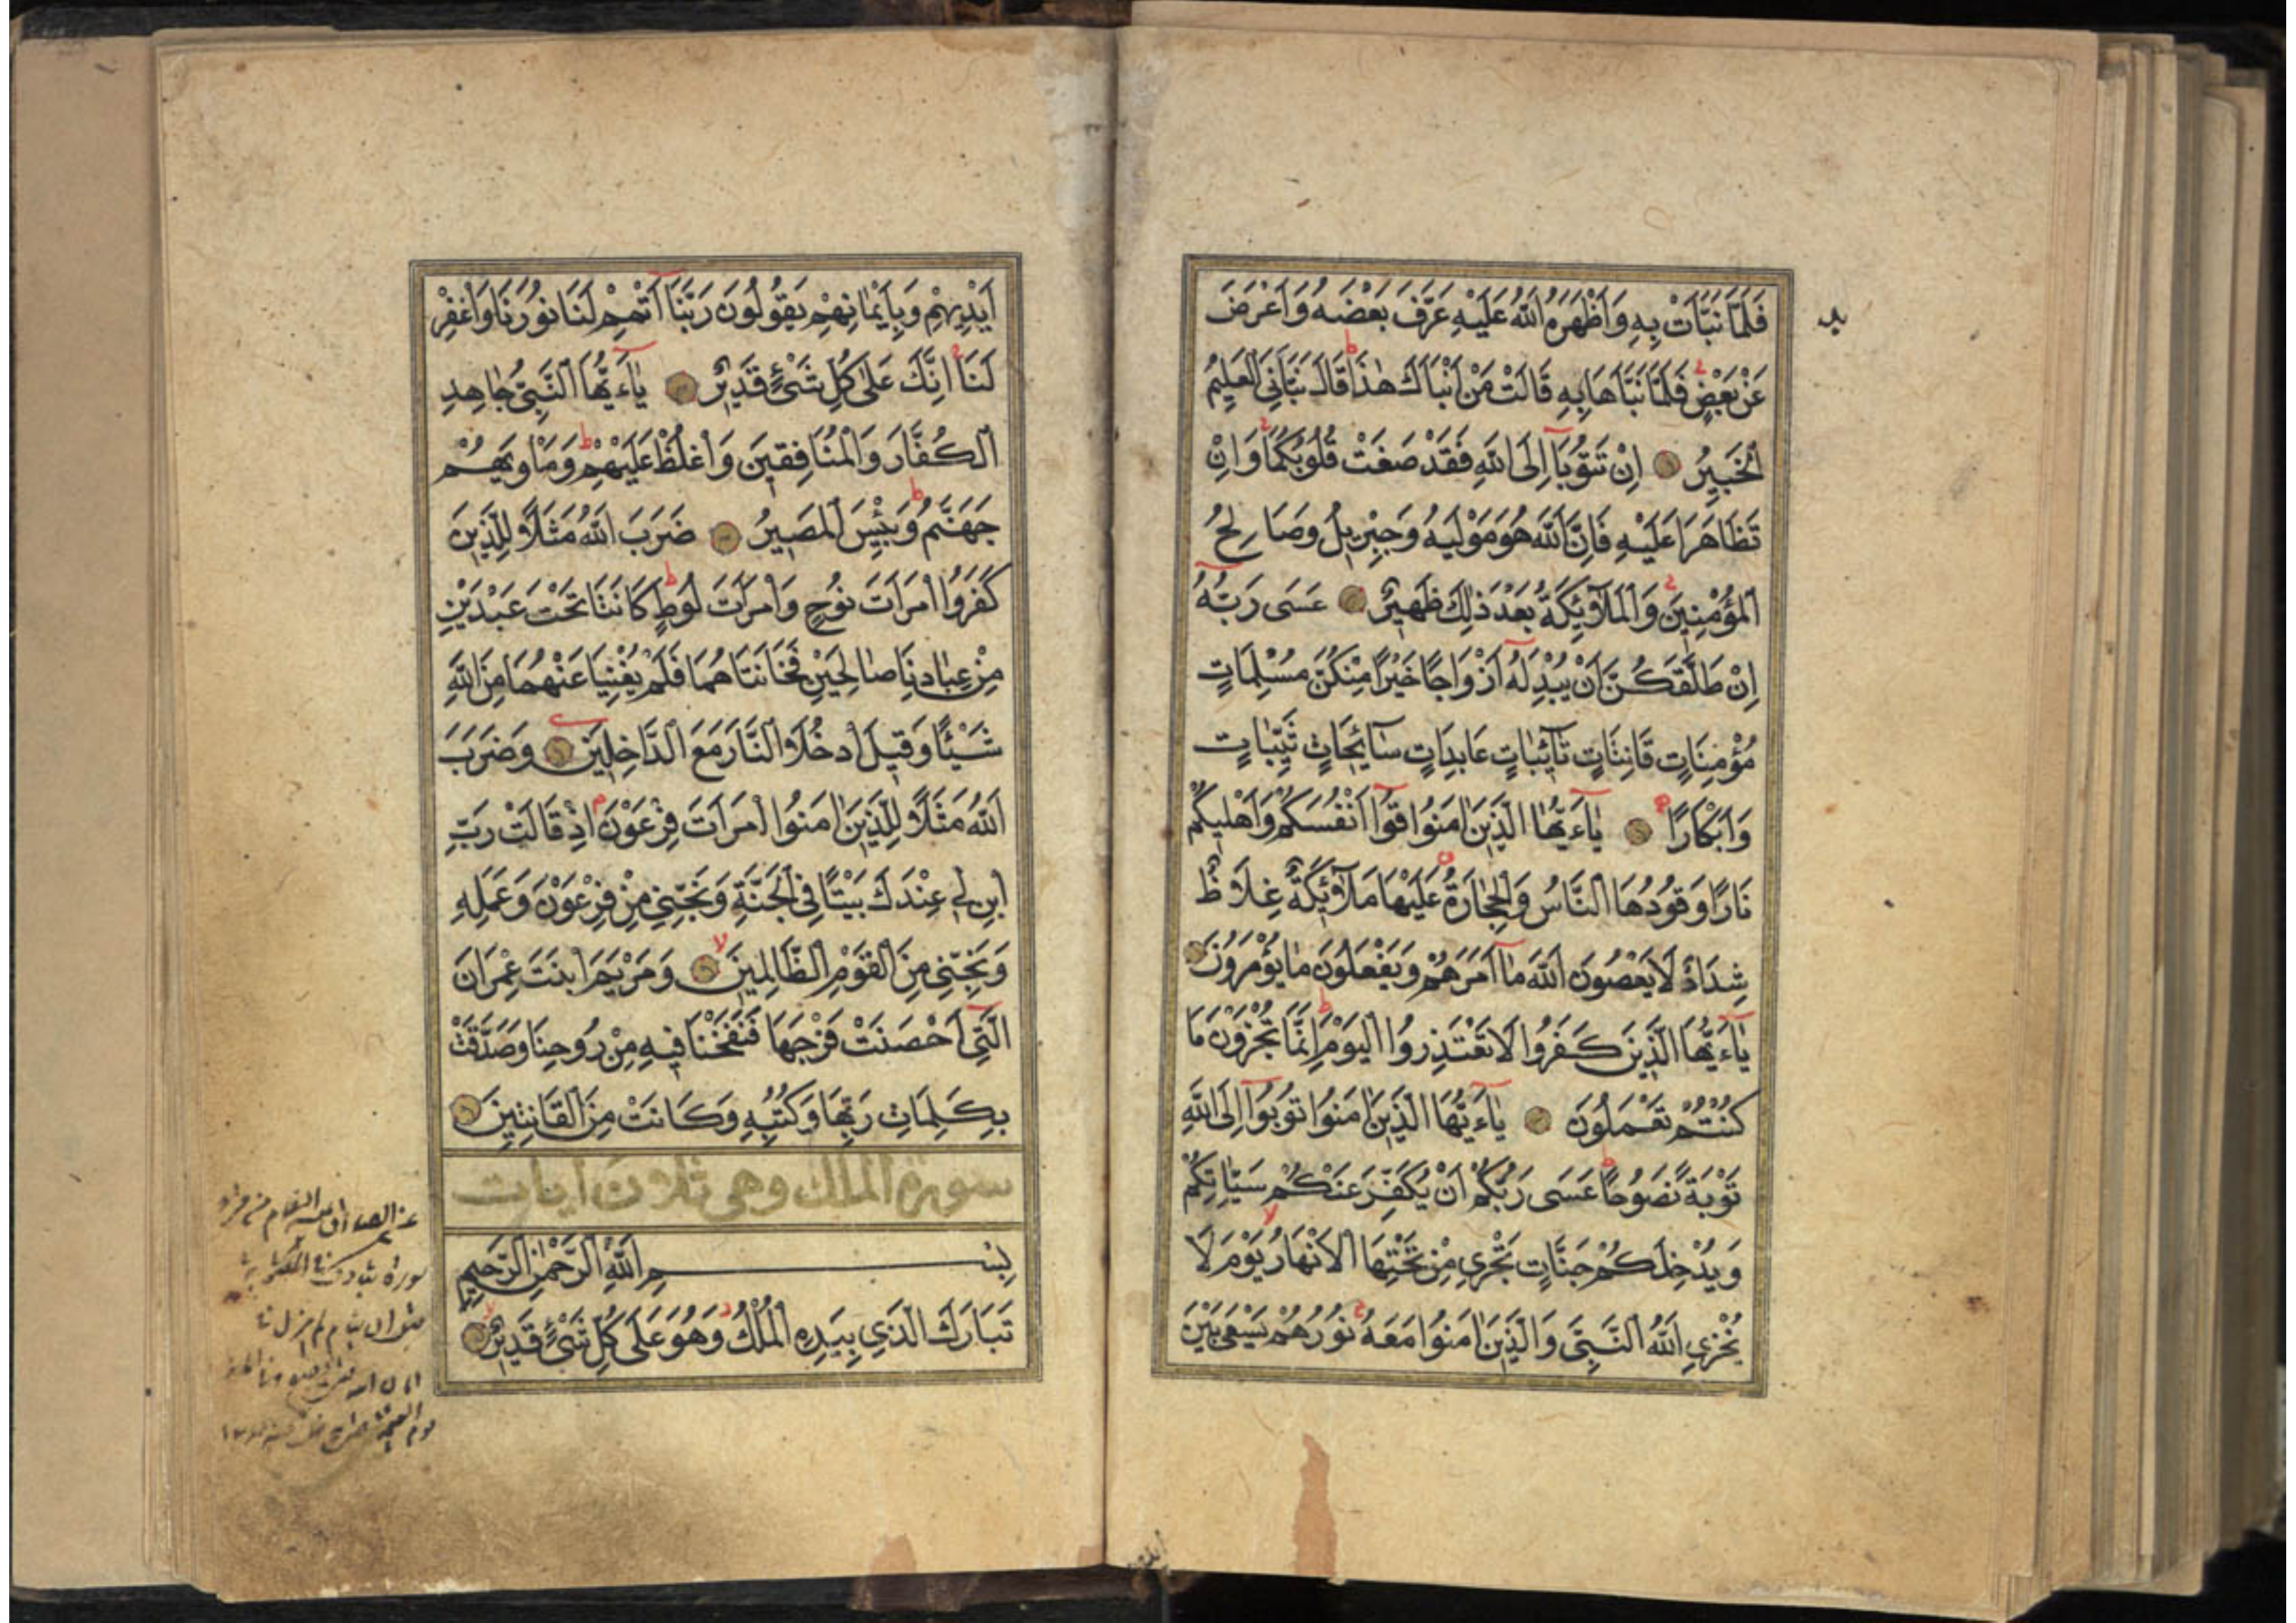 فَلَمَّا نَبَّاَتْ بِهِ وَاَظْهَرَهُ اللّٰهُ عَلَيْهِ عَرَّفَ بَعْضَهُ وَاَعْرَضَ
عَنْ بَعْضٍ فَلَمَّا نَبَّاَهَا بِهِ قَالَتْ مَنْ اَنْبَاَكَ هٰذَا قَالَ نَبَّاَنِيَ الْعَلِيمُ
الْخَبِيرُ اِنْ تَتُوبَا اِلَى اللّٰهِ فَقَدْ صَغَتْ قُلُوبُكُمَا وَاِنْ
تَظَاهَرَا عَلَيْهِ فَاِنَّ اللّٰهَ هُوَ مَوْلٰيهُ وَجِبْرِيلُ وَصَالِحُ
الْمُؤْمِنِينَ وَالْمَلَآئِكَةُ بَعْدَ ذٰلِكَ ظَهِيرٌ عَسَى رَبُّهُ
اِنْ طَلَّقَكُنَّ اَنْ يُبْدِلَهُ اَزْوَاجًا خَيْرًا مِنْكُنَّ مُسْلِمَاتٍ
مُؤْمِنَاتٍ قَانِتَاتٍ تَآئِبَاتٍ عَابِدَاتٍ سَآئِحَاتٍ ثَيِّبَاتٍ
وَاَبْكَارًا يَآءَيُّهَا الَّذِينَ اٰمَنُوا قُوا اَنْفُسَكُمْ وَاَهْلِيكُمْ
نَارًا وَقُودُهَا النَّاسُ وَالْحِجَارَةُ عَلَيْهَا مَلَآئِكَةٌ غِلَاظٌ
شِدَادٌ لَا يَعْصُونَ اللّٰهَ مَا اَمَرَهُمْ وَيَفْعَلُونَ مَا يُؤْمَرُونَ
يَآءَيُّهَا الَّذِينَ كَفَرُوا لَا تَعْتَذِرُوا الْيَوْمَ اِنَّمَا تُجْزَوْنَ مَا
كُنْتُمْ تَعْمَلُونَ يَآءَيُّهَا الَّذِينَ اٰمَنُوا تُوبُوا اِلَى اللّٰهِ
تَوْبَةً نَصُوحًا عَسَى رَبُّكُمْ اَنْ يُكَفِّرَ عَنْكُمْ سَيِّاٰتِكُمْ
وَيُدْخِلَكُمْ جَنَّاتٍ تَجْرِي مِنْ تَحْتِهَا الْاَنْهَارُ يَوْمَ لَا
يُخْزِي اللّٰهُ النَّبِيَّ وَالَّذِينَ اٰمَنُوا مَعَهُ نُورُهُمْ يَسْعٰى بَيْنَ
اَيْدِيهِمْ وَبِاَيْمَانِهِمْ يَقُولُونَ رَبَّنَا اَتْمِمْ لَنَا نُورَنَا وَاغْفِرْ
لَنَا اِنَّكَ عَلٰى كُلِّ شَيْءٍ قَدِيرٌ يَآءَيُّهَا النَّبِيُّ جَاهِدِ
الْكُفَّارَ وَالْمُنَافِقِينَ وَاغْلُظْ عَلَيْهِمْ وَمَاْوٰيهُمْ
جَهَنَّمُ وَبِئْسَ الْمَصِيرُ ضَرَبَ اللّٰهُ مَثَلًا لِلَّذِينَ
كَفَرُوا امْرَاَتَ نُوحٍ وَامْرَاَتَ لُوطٍ كَانَتَا تَحْتَ عَبْدَيْنِ
مِنْ عِبَادِنَا صَالِحَيْنِ فَخَانَتَاهُمَا فَلَمْ يُغْنِيَا عَنْهُمَا مِنَ اللّٰهِ
شَيْئًا وَقِيلَ ادْخُلَا النَّارَ مَعَ الدَّاخِلِينَ وَضَرَبَ
اللّٰهُ مَثَلًا لِلَّذِينَ اٰمَنُوا امْرَاَتَ فِرْعَوْنَ اِذْ قَالَتْ رَبِّ
ابْنِ لِي عِنْدَكَ بَيْتًا فِي الْجَنَّةِ وَنَجِّنِي مِنْ فِرْعَوْنَ وَعَمَلِهِ
وَنَجِّنِي مِنَ الْقَوْمِ الظَّالِمِينَ وَمَرْيَمَ ابْنَتَ عِمْرَانَ
الَّتِي اَحْصَنَتْ فَرْجَهَا فَنَفَخْنَا فِيهِ مِنْ رُوحِنَا وَصَدَّقَتْ
بِكَلِمَاتِ رَبِّهَا وَكُتُبِهِ وَكَانَتْ مِنَ الْقَانِتِينَ
سورة الملك وهي ثلاثون ايات
بِسْمِ اللّٰهِ الرَّحْمٰنِ الرَّحِيمِ
تَبَارَكَ الَّذِي بِيَدِهِ الْمُلْكُ وَهُوَ عَلٰى كُلِّ شَيْءٍ قَدِيرٌ